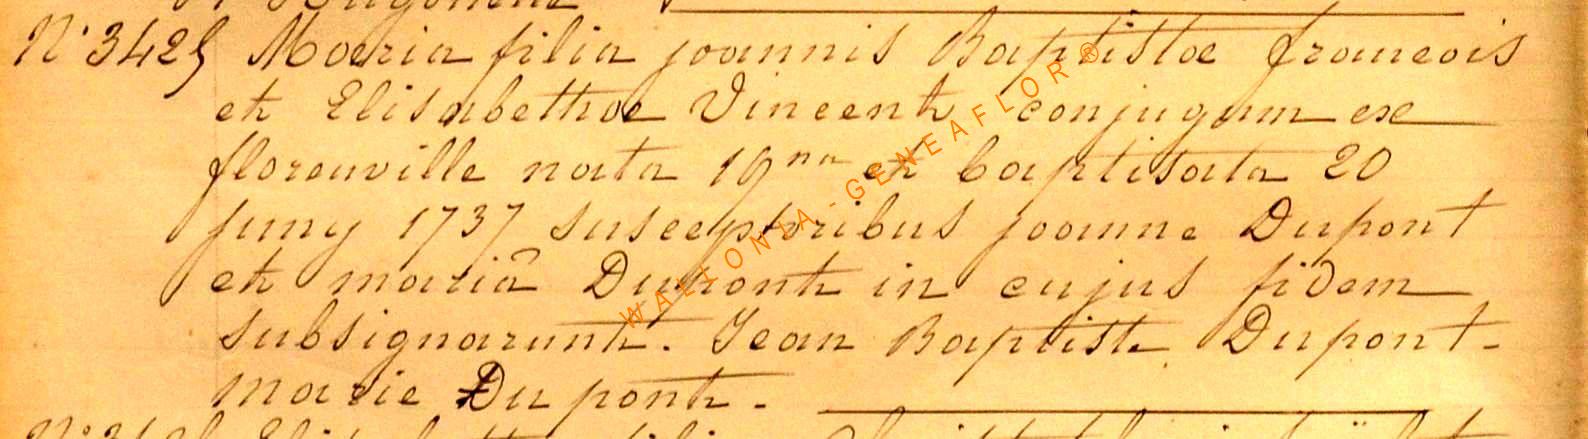 N° 3425 Maria filia joannis Baptistae francois
et Elisabethae Vincent conjugum ex
florenville nata 19na et baptisata 20
juny 1737 susceptoribus joanne Dupont
et mariâ Dupont in cujus fidem
subsignarunt. Jean Baptiste Dupont-
marie Dupont.
WALLONIA-GENEAFLOR®